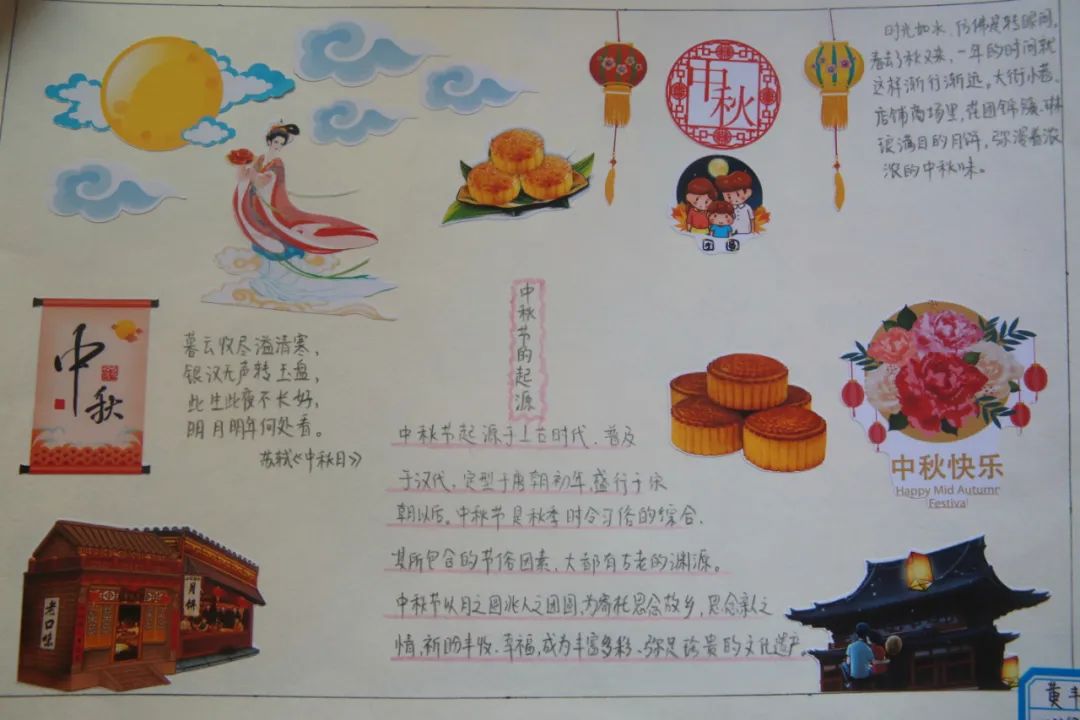 时光如水,仿佛是转眼间,
春去了秋又来,一年的时间就
这样渐行渐远。大街小巷、
店铺商场里,花团锦簇、琳
琅满目的月饼,弥漫着浓
浓的中秋味。
中秋
团圆
中秋
暮云收尽溢清寒,
银汉无声转玉盘,
此生此夜不长好,
明月明年何处看。
苏轼《中秋月》
中秋节的起源
中秋节起源于上古时代,普及
于汉代,定型于唐朝初年,盛行于宋
朝以后。中秋节是秋季时令习俗的综合,
其所包含的节俗因素,大都有古老的渊源。
中秋节以月之圆兆人之团圆,为寄托思念故乡,思念亲人之
情,祈盼丰收、幸福,成为丰富多彩、弥足珍贵的文化遗产。
中秋快乐
Happy Mid Autumn
Festival
老口味
月饼
黄丰